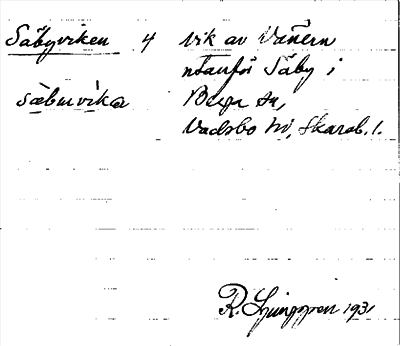 Säbyviken 4 Vik av Vänern
utanför Säby i
säbuvika Berga sn,
Vadsbo hd, Skarab. l.
R. Ljunggren 1931